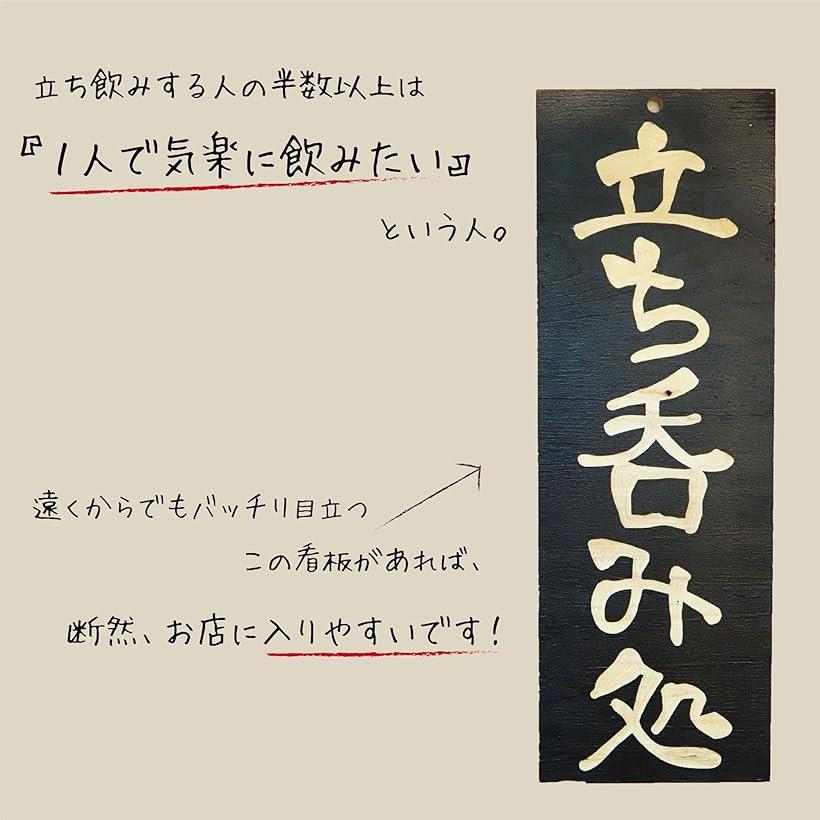 立ち飲みする人の半数以上は
『1人で気楽に飲みたい』
という人。
遠くからでもバッチリ目立つ
この看板があれば、
断然、お店に入りやすいです！
立ち呑み処